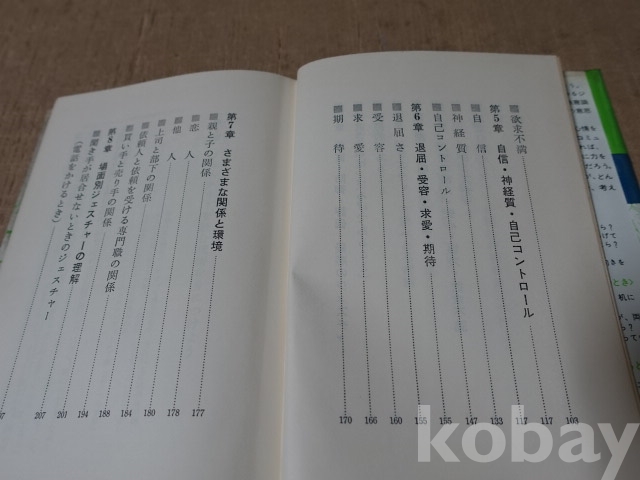 ■欲求不満 103
第5章 自信・神経質・自己コントロール 117
■自信 117
■神経質 133
■自己コントロール 147
第6章 退屈・受容・求愛・期待 155
■退屈さ 155
■受容 160
■求愛 166
■期待 170
第7章 さまざまな関係と環境 177
■親と子の関係 178
■恋人 180
■他人 184
■上司と部下の関係 188
■依頼人と依頼を受ける専門職の関係 194
■買い手と売り手の関係 201
第8章 場面別ジェスチャーの理解 207
■聞き手が居合せないときのジェスチャー
(電話をかけるとき)
kobay